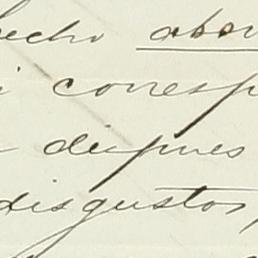 hecho abon
i corresp
despues
disgustos,